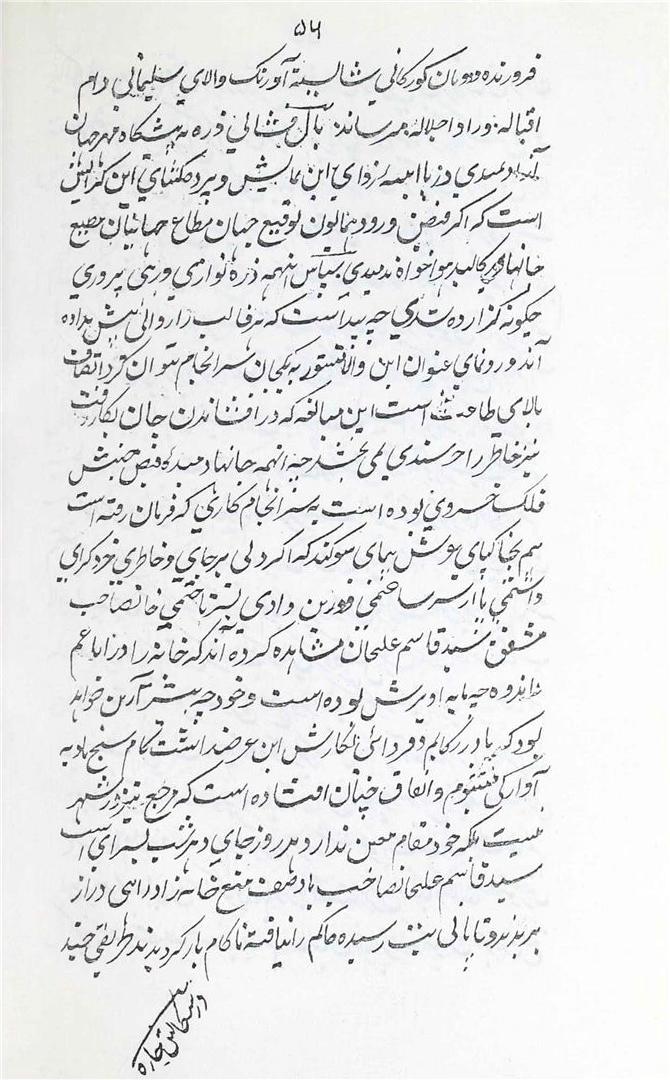 ۵۶
فروزنده دودمان کورکانی شایسته آورنک والای سلیمانی دام
اقباله وزاد اجلاله میرساند بال فشانی ذره به پیشکاه مهر جهان
این نمایش و پرده کشای این کزارش
است که اکر فیض ورود همایون توقیع جهان مطاع جهانیان مطیع
جانها در کالبد هواخواه ندمیدی سپاس اینهمه ذره نوازی و رهی پروری
چکونه کزارده شدی چه پیداست که هر قالب را روانی بیش نداده
اند و رونمای عنوان این والا منشور به یکجان سرانجام نتوان کرد
بالای طاعت است این مبالغه که در افشاندن جان بکار رفت
نیز خاطر را خرسندی نمی بخشد چه اینهمه جانها دمیده فیض جنبش
کلک خسروی بوده است به سرانجام کاری که فرمان رفته است
هم بخاکپای عرش سای سوکند که اکر دلی بر جای و خاطری خرد کرای
داشتمی پا از سر ساختمی و درین وادی بسر تاختمی خانصاحب
مشفق سید قاسم علیخان مشاهده کرده اند که خانه را در ایامم
چه مایه آویزش بوده است و خود چه بیشتر ازین خواهد
بود که پا در رکابم و فردای نکارش این عرضداشت کام سنج بادیه
آوارکی میشوم و اتفاق چنان افتاده است که مرجع نیز در شهر
نیست بلکه خود مقام معین ندارد هر روز جای و هر شب بسرای است
سید قاسم علیخانصاحب با وصف منع خانه زاد راهی دراز
بریدند و تا پانی پت رسیده حاکم را نیافته ناکام باز کردیدند طریقی چند
در سکالش چاره